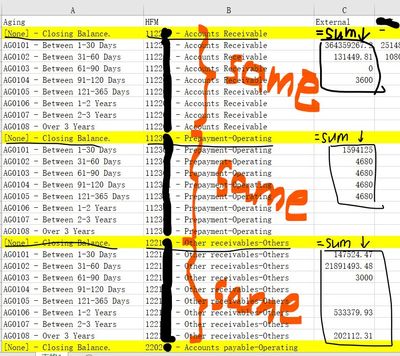 A B C
Aging HFM External
[None] - Closing Balance. 112 - Accounts Receivable =sum↓
AG0101 - Between 1-30 Days 1122 - Accounts Receivable 364359267.
AG0102 - Between 31-60 Days 1122 Accounts Receivable 131449.81
AG0103 - Between 61-90 Days 1122 Accounts Receivable 0
AG0104 - Between 91-120 Days 1122 - Accounts Receivable 3600
AG0105 - Between 121-365 Days 1122 - Accounts Receivable
AG0106 - Between 1-2 Years 1122 - Accounts Receivable
AG0107 - Between 2-3 Years 1122 - Accounts Receivable
AG0108 - Over 3 Years 1122 - Accounts Receivable
same
[None] - Closing Balance. 1123 - Prepayment-Operating =sum↓
AG0101 - Between 1-30 Days 1123 - Prepayment-Operating 1594125
AG0102 - Between 31-60 Days 1123 - Prepayment-Operating 4680
AG0103 - Between 61-90 Days 1123 - Prepayment-Operating 4680
AG0104 - Between 91-120 Days 1123 - Prepayment-Operating 4680
AG0105 - Between 121-365 Days 1123 - Prepayment-Operating 4680
AG0106 - Between 1-2 Years 1123 - Prepayment-Operating 4680
AG0107 - Between 2-3 Years 1123 - Prepayment-Operating
AG0108 - Over 3 Years 1123 - Prepayment-Operating
same
[None] - Closing Balance. 1221 - Other receivables-Others =sum ↓
AG0101 - Between 1-30 Days 1221 - Other receivables-Others 147524.47
AG0102 - Between 31-60 Days 1221 - Other receivables-Others 21891493.48
AG0103 - Between 61-90 Days 1221 - Other receivables-Others 3000
AG0104 - Between 91-120 Days 1221 - Other receivables-Others
AG0105 - Between 121-365 Days 1221 - Other receivables-Others
AG0106 - Between 1-2 Years 1221 - Other receivables-Others 533379.93
AG0107 - Between 2-3 Years 1221 - Other receivables-Others
AG0108 - Over 3 Years 1221 - Other receivables-Others 202112.31
same
[None] - Closing Balance. 2202 - Accounts payable-Operating